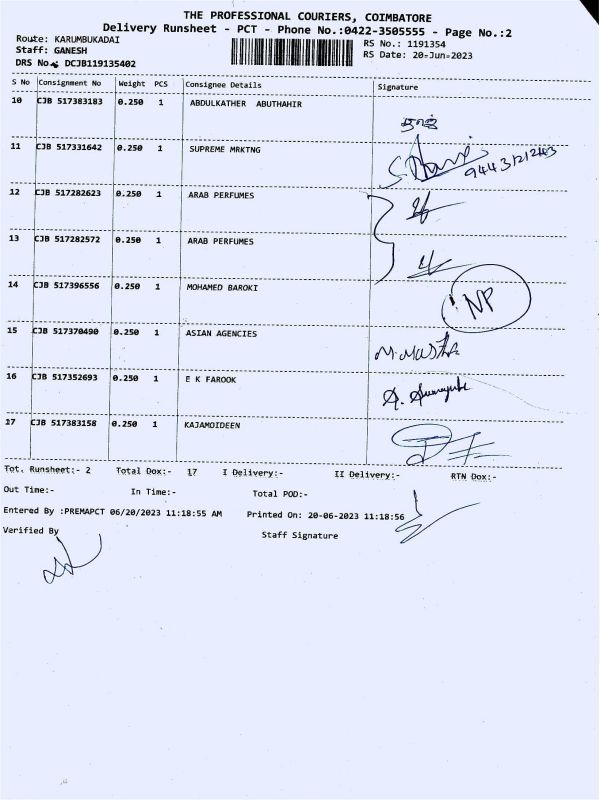 THE PROFESSIONAL COURIERS, COIMBATORE
Delivery Runsheet - PCT - Phone No.:0422-3505555 - Page No.:2
Route: KARUMBUKADAI
RS No.: 1191354
Staff: GANESH
RS Date: 20-Jun-2023
DRS No. DCJB119135402
S No Consignment No Weight PCS Consignee Details Signature
10 CJB 517383183 0.250 1 ABDULKATHER ABUTHAHIR
11 CJB 517331642 0.250 1 SUPREME MRKTNG
12 CJB 517282623 0.250 1 ARAB PERFUMES
13 CJB 517282572 0.250 1 ARAB PERFUMES
14 CJB 517396556 0.250 1 MOHAMED BAROKI NP
15 CJB 517370490 0.250 1 ASIAN AGENCIES
16 CJB 517352693 0.250 1 E K FAROOK
17 CJB 517383158 0.250 1 KAJAMOIDEEN
Tot. Runsheet:- 2 Total Dox:- 17 I Delivery:- II Delivery:- RTN Dox:-
Out Time:- In Time:- Total POD:-
Entered By :PREMAPCT 06/20/2023 11:18:55 AM Printed On: 20-06-2023 11:18:56
Verified By Staff Signature